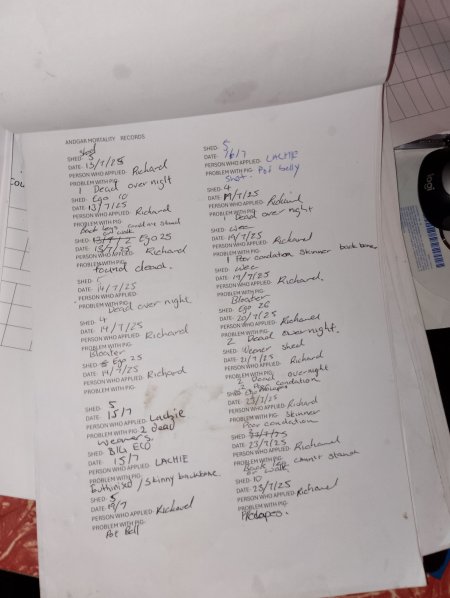 ANDGAR MORTALITY RECORDS
SHED: 5
DATE: 13/7/25
PERSON WHO APPLIED: Richard
PROBLEM WITH PIG:
1 Dead over night
SHED: Ego 10
DATE: 13/7/25
PERSON WHO APPLIED: Richard
PROBLEM WITH PIG:
Back legs cannot stand
or walk
SHED: Ego 25
DATE: 13/7/25
PERSON WHO APPLIED: Richard
PROBLEM WITH PIG:
found dead.
SHED:
DATE: 14/7/25
PERSON WHO APPLIED:
PROBLEM WITH PIG:
Dead over night
SHED: 4
DATE: 14/7/25
PERSON WHO APPLIED: Richard
PROBLEM WITH PIG:
Bloater
SHED: Ego 25
DATE: 14/7/25
PERSON WHO APPLIED: Richard
PROBLEM WITH PIG:
SHED: 5
DATE: 15/7
PERSON WHO APPLIED: Lachie
PROBLEM WITH PIG: 2 dead
weaners.
SHED: BIG ECO
DATE: 15/7
PERSON WHO APPLIED: LACHIE
PROBLEM WITH PIG:
Euthinised / Skinny backbone
SHED: 5
DATE:
PERSON WHO APPLIED: Richard
PROBLEM WITH PIG:
Pot Bell
SHED: 5
DATE: 16/7
PERSON WHO APPLIED: LACHIE
PROBLEM WITH PIG: Pot belly
Shot.
SHED: 4
DATE: 19/7/25
PERSON WHO APPLIED: Richard
PROBLEM WITH PIG:
1 Dead over night
SHED: Wec
DATE: 19/7/25
PERSON WHO APPLIED: Richard
PROBLEM WITH PIG:
1 Poor condation Skinner back bone
SHED: Wec
DATE: 19/7/25
PERSON WHO APPLIED: Richard,
PROBLEM WITH PIG:
Bloater
SHED: Ego 26
DATE: 20/7/25
PERSON WHO APPLIED: Richard
PROBLEM WITH PIG:
2 Dead overnight.
SHED: Weaner shed
DATE: 21/7/25
PERSON WHO APPLIED: Richard
PROBLEM WITH PIG:
2 Dead overnight
2 condation.
SHED:
DATE: 23/7/25
PERSON WHO APPLIED: Richard
PROBLEM WITH PIG: Skinner
Poor condation
SHED:
DATE: 23/7/25
PERSON WHO APPLIED: Richard
PROBLEM WITH PIG:
Back leg cannot stand
or walk
SHED: 10
DATE: 25/7/25
PERSON WHO APPLIED: Richard
PROBLEM WITH PIG:
Prolapes.
logi